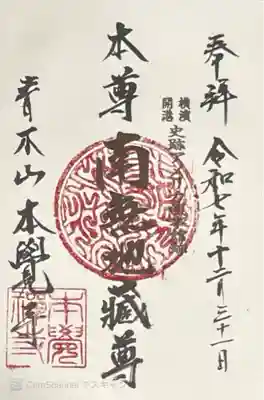 奉拝 令和七年十二月三十一日
横濱開港
史跡アメリカ領事館跡
本尊 南無地蔵尊
青木山 本覺寺
本覺禪寺
CamScanner でスキャン